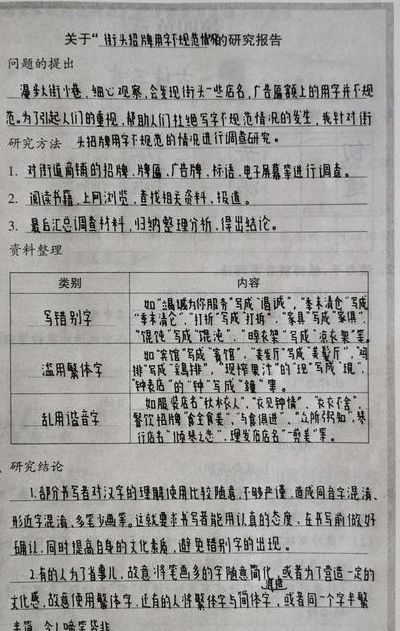 关于“街头招牌用字不规范情况的研究报告
问题的提出
漫步大街小巷,细心观察,会发现街头一些店名,广告匾额上的用字并不规
范。为了引起人们的重视,帮助人们杜绝写字不规范情况的发生,我针对街
研究方法 头招牌用字不规范的情况进行调查研究。
1. 对街道商铺的招牌、牌匾、广告牌、标语、电子屏幕等进行调查。
2. 阅读书籍、上网浏览,查找相关资料、报道。
3. 最后汇总调查材料,归纳整理分析,得出结论。
资料整理
类别 内容
写错别字 如“竭诚为你服务”写成“遏诚”,“季末清仓”写成
“季末清仑”,“打折”写成“打拆”,“家具”写成“家俱”,
“馄饨”写成“混沌”,“晾衣架”写成“凉衣架”等。
滥用繁体字 如“宾馆”写成“賓馆”,“美发厅”写成“美髮厅”,
排”写成“鷄排”,“现榨果汁”的“现”写成“現”,
“钟表店”的“钟”写成“鐘”等。
乱用谐音字 如服装店名“衣衣不舍”,
餐饮招牌“食全食美”、“与食俱进”、“众所粥知”,琴
行店名“一琴”,理发店店名“”等。
研究结论
1.部分书写者对汉字的理解使用比较随意,不够严谨,造成同音字混淆、
形近字混淆、多笔少画等。这就要求书写者能用认真的态度,在书写前做好
确认,同时提高自身的文化素质,避免错别字的出现。
2.有的人为了省事儿,故意将笔画多的字随意简化,或者为了营造一定的
文化感,故意使用繁体字,还有的人将繁体字与简体字混淆,或者同一个字半繁
半简,令人啼笑皆非